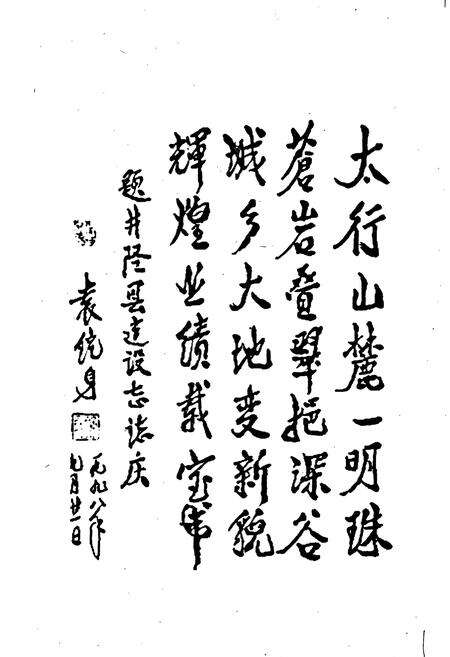 太行山麓一明珠
蒼岩叠翠挹深谷
城乡大地变新貌
輝煌业績載宝
题井陉县建设志誌庆
袁
一九九八年
月廿一日